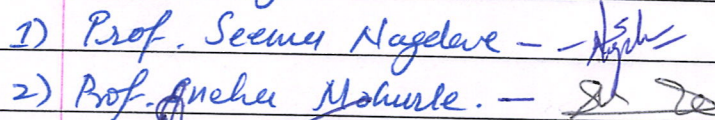 1) Prof. Seema Nagdeve - -
2) Prof. Sneha Mohurle. -